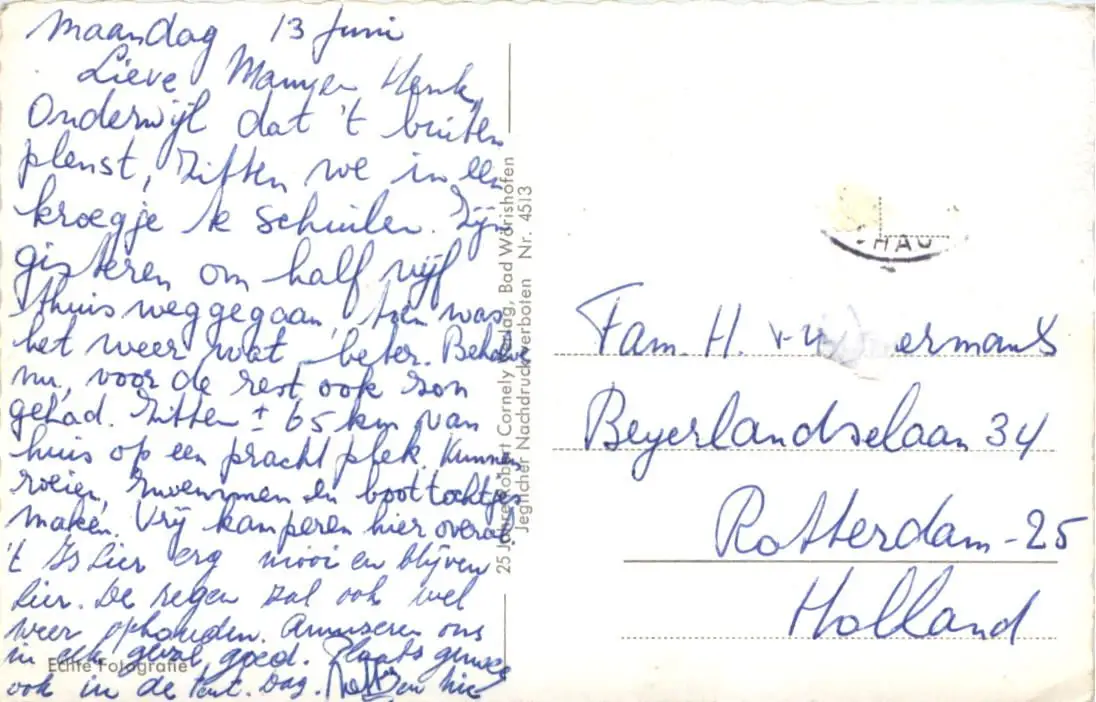 Maandag 13 Juni
Lieve Mamyen Henk,
Onderwijl dat 't buiten
plenst, zitten we in een
kroegje te schuilen. Zijn
gisteren om half vijf
thuis weggegaan, toen was
het weer wat beter. Behalve
nu, voor de rest ook zon
gehad. Zitten ± 65 km van
huis op een pracht plek. Kunnen
roeien, zwemmen en boottochtjes
maken. Vrij kamperen hier overal.
't Is hier erg mooi en blijven
hier. De regen zal ook wel
weer ophouden. Amuseren ons
in elk geval goed. Plaats genoeg
ook in de tent. Dag.
Echte Fotografie
25 Jahre Robert Cornely Verlag, Bad Wörishofen
Jeglicher Nachdruck verboten Nr. 4513
HAU
Fam. H. ermans
Beyerlandselaan 34
Rotterdam-25
Holland